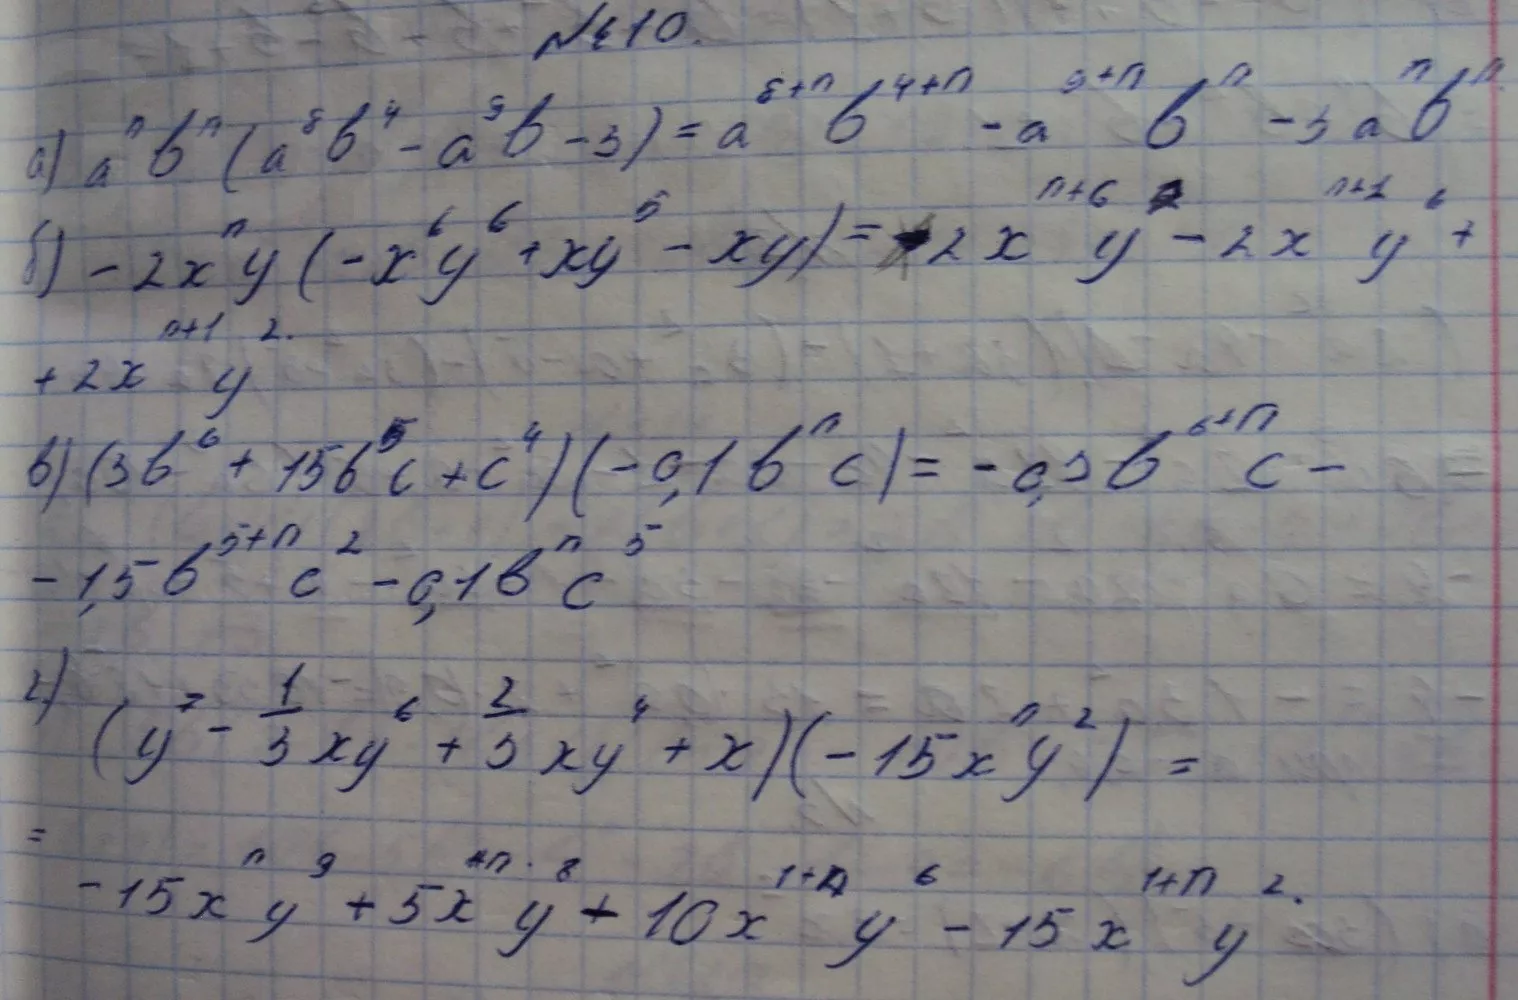 №10.
а) aⁿbⁿ(a⁸b⁴ - a⁹b - 3) = a⁸⁺ⁿb⁴⁺ⁿ - a⁹⁺ⁿbⁿ - 3aⁿbⁿ
б) -2xⁿy(-x⁶y⁶ + xy⁵ - xy) = 2xⁿ⁺⁶y⁷ - 2xⁿ⁺¹y⁶ +
+ 2xⁿ⁺¹y².
в) (3b⁶ + 15b⁵c + c⁴)(-0,1bⁿc) = -0,3b⁶⁺ⁿc -
- 1,5b⁵⁺ⁿc² - 0,1bⁿc⁵
г) (y⁷ - 1/3xy⁶ + 2/3xy⁴ + x)(-15xⁿy²) =
= -15xⁿy⁹ + 5x¹⁺ⁿy⁸ + 10x¹⁺ⁿy⁶ - 15x¹⁺ⁿy².